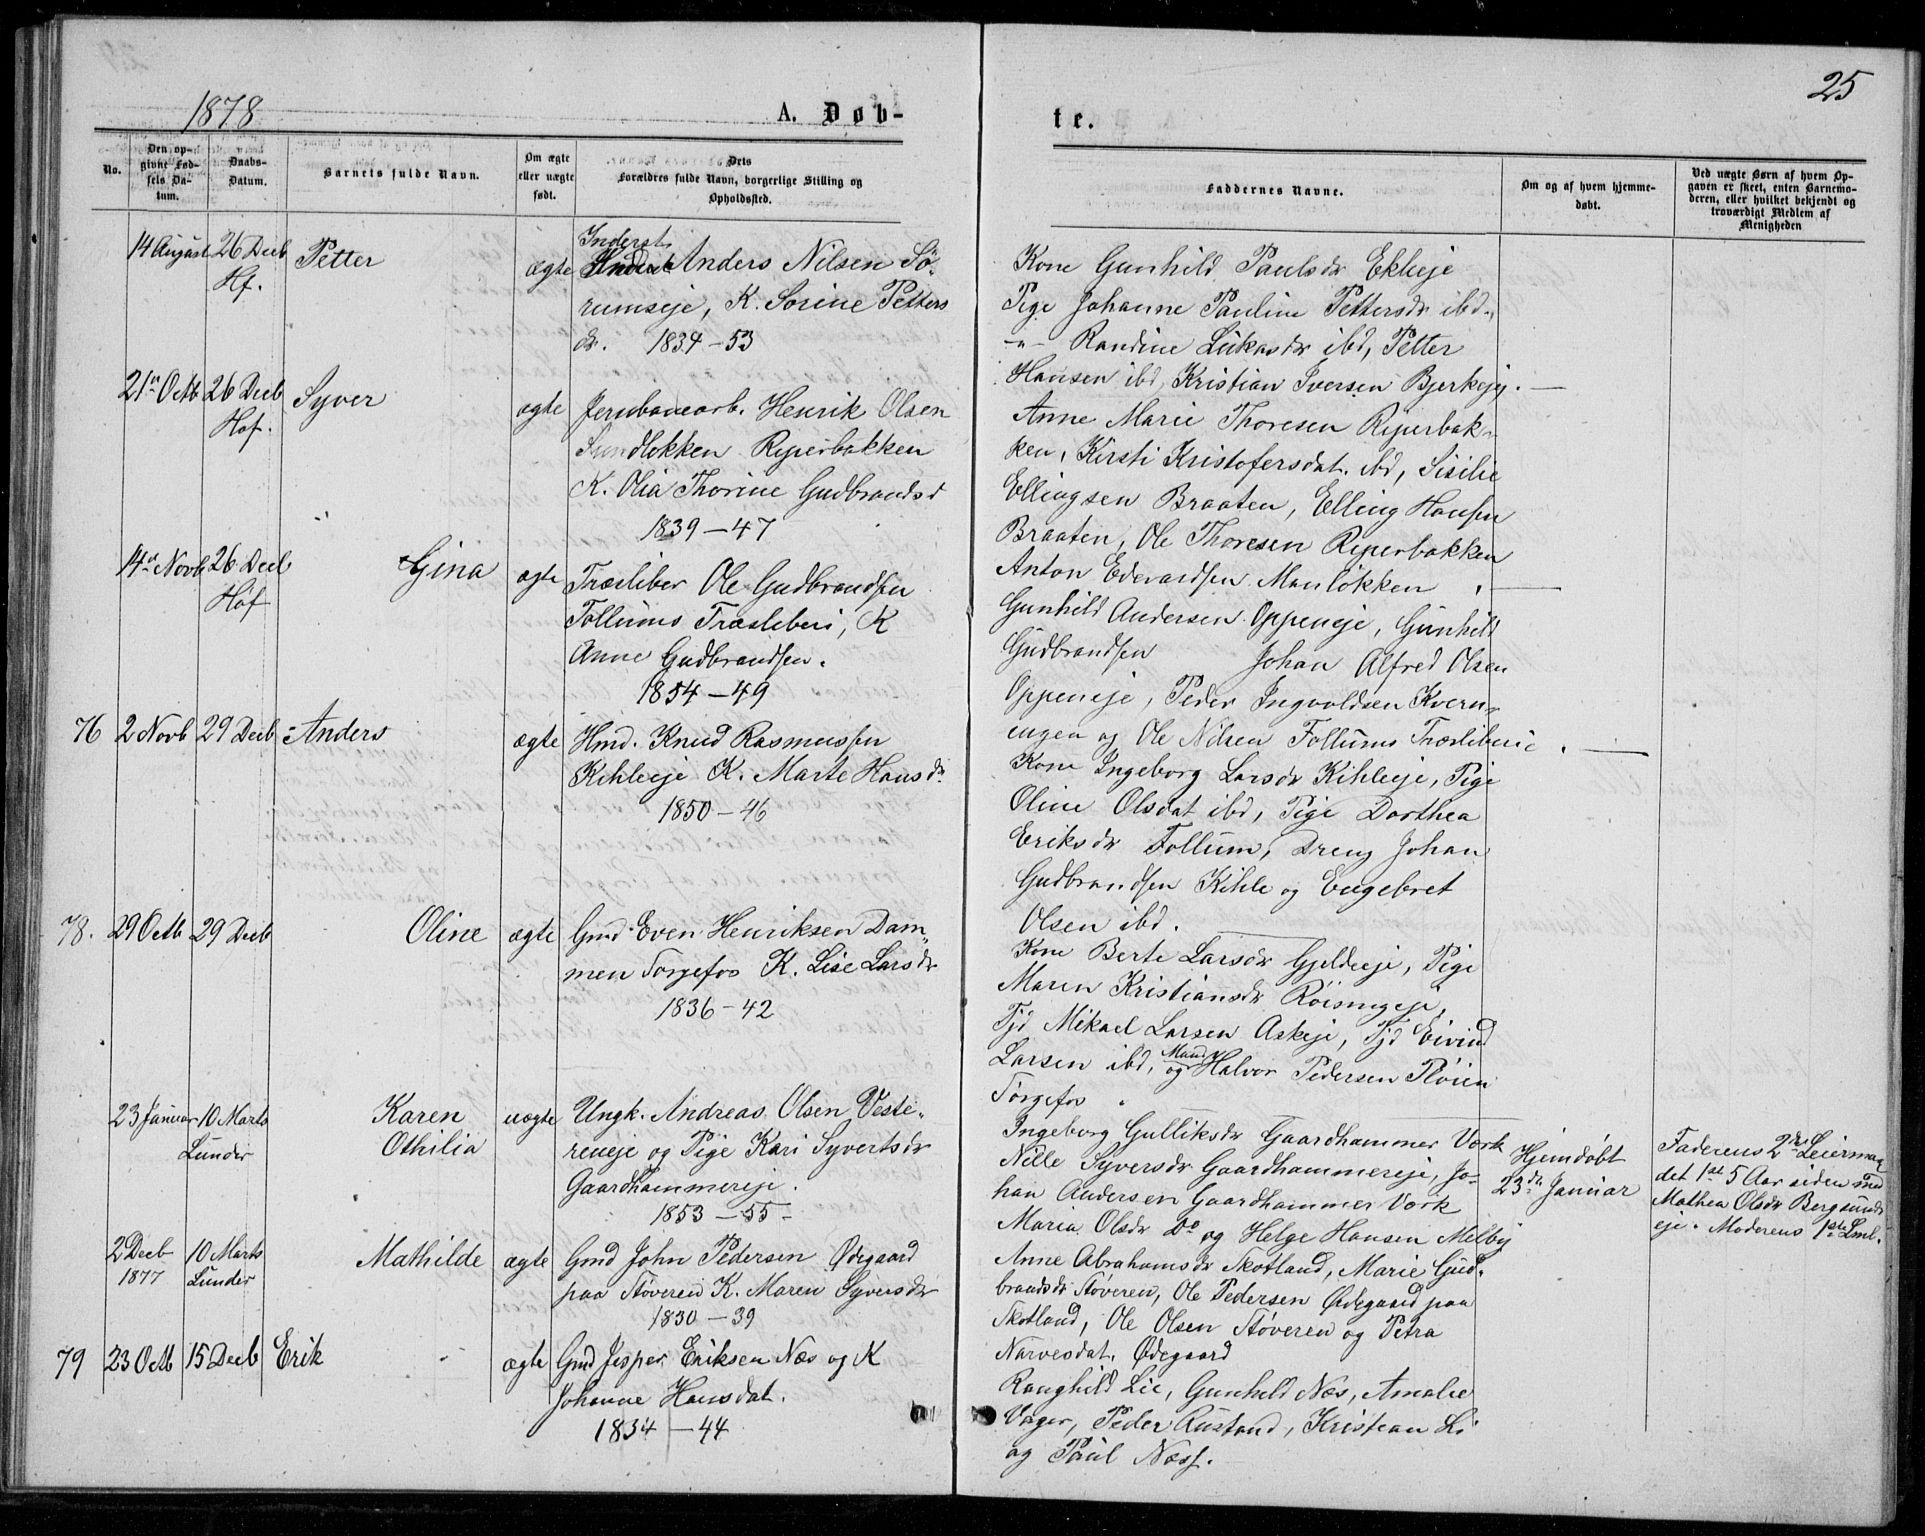 25
1878
A. Døb-
te.
No.
Den op-
givne Fød-
sels Da-
tum.
Daabs-
Datum.
Barnets fulde Navn.
Om ægte
eller uægte
født.
Dets
Forældres fulde Navn, borgerlige Stilling og
Opholdssted.
Faddernes Navne.
Om og af hvem hjemme-
døbt.
Ved uægte Børn af hvem Op-
gaven er skeet, enten Barnemo-
deren, eller hvilket bekjendt og
troværdigt Medlem af
Menigheden
14 August 26 Decb Petter ægte
Hf.
Inderst
Anders Nilsen Sö-
rumseje, K. Sorine Petters
dr. 1834-53
Kone Gunhild Paulsdr Ekleje
Pige Johanne Pauline Pettersdr ibd.,
-"- Randine Lukasdr ibd, Petter
Hansen ibd, Kristian Iversen Bjerkejy.
21de Octb 26 Decb Syver ægte
Hof.
Jernbanearb. Henrik Olsen
Sundlokken Ryperbakken
K. Olia Thorine Gudbrandsd
1839-47
Anne Marie Thoresen Ryperbak-
ken, Kirsti Kristofersdat. ibd, Sisilie
Ellingsen Braaten, Elling Hansen
Braaten, Ole Thoresen Ryperbakken
Anton Edevardsen Manlökken.
14de Novb 26 Decb Gina ægte
Hof
Træsliber Ole Gudbrandsen
Follums Træsliberi, K
Anne Gudbrandsen.
1854-49
Gunhild Andersen Oppeneje, Gunhild
Gudbrandsen Johan Alfred Olsen
Oppeneje, Peder Ingvoldsen Kvern-
engen og Ole Nilsen Follums Træsliberie.
76 2 Novb 29 Decb Anders ægte
Hmd. Knud Rasmussen
Kihleeje K. Marte Hansdr
1850-46
Kone Ingeborg Larsdr Kihleeje, Pige
Oline Olsdat ibd, Pige Dorthea
Eriksdr Follum, Dreng Johan
Gudbrandsen Kihle og Engebret
Olsen ibd.
78. 29 Octb 29 Decb Oline ægte
Gmd Even Henriksen Dam-
men Sørgefos K. Lise Larsdr
1836-42
Kone Berte Larsdr Gjeldeeje, Pige
Maren Kristiansdr
Tjd Mikael Larsen Askeje, Tjd Eivind
Larsen ibd, og Mand Halvor Pedersen Pløien
Sørgefos.
23 Januar 10 Marts Karen uægte
Lunder Othilia
Ungk. Andreas Olsen Veste-
reneje og Pige Kari Syvertsdr
Gaardhammereje.
1853-55-
Ingeborg Gulliksdr Gaardhammer Værk
Nille Syversdr Gaardhammereje, Jo-
han Andersen Gaardhammer Værk
Maria Olsdr Do og Helge Hansen Melby
Hjemdøbt
23de Januar
Faderens 2det Leiermaal
det 1ste 5 Aar siden med
Mathea Olsdr Bergsund-
eje. Moderens 1ste Lml.
2 Decb 10 Marts Mathilde ægte
1877 Lunder
Gmd John Pedersen Ødegaard
paa Støveren K. Maren Syversdr
1830-39
Anne Abrahamsdr Skotland, Marie Gud-
brandsdr Støveren, Ole Pedersen Ødegaard paa
Skotland, Ole Olsen Støveren og Petra
Narvesdat. Ødegaard
79 23 Octb 15 Decb Erik ægte
Gmd Jesper Eriksen Næs og K
Johanne Hansdat.
1834-44
Ranghild Lie, Gunhild Næs, Amalie
Vager, Peder Rustand, Kristian Li
og Paul Næss.